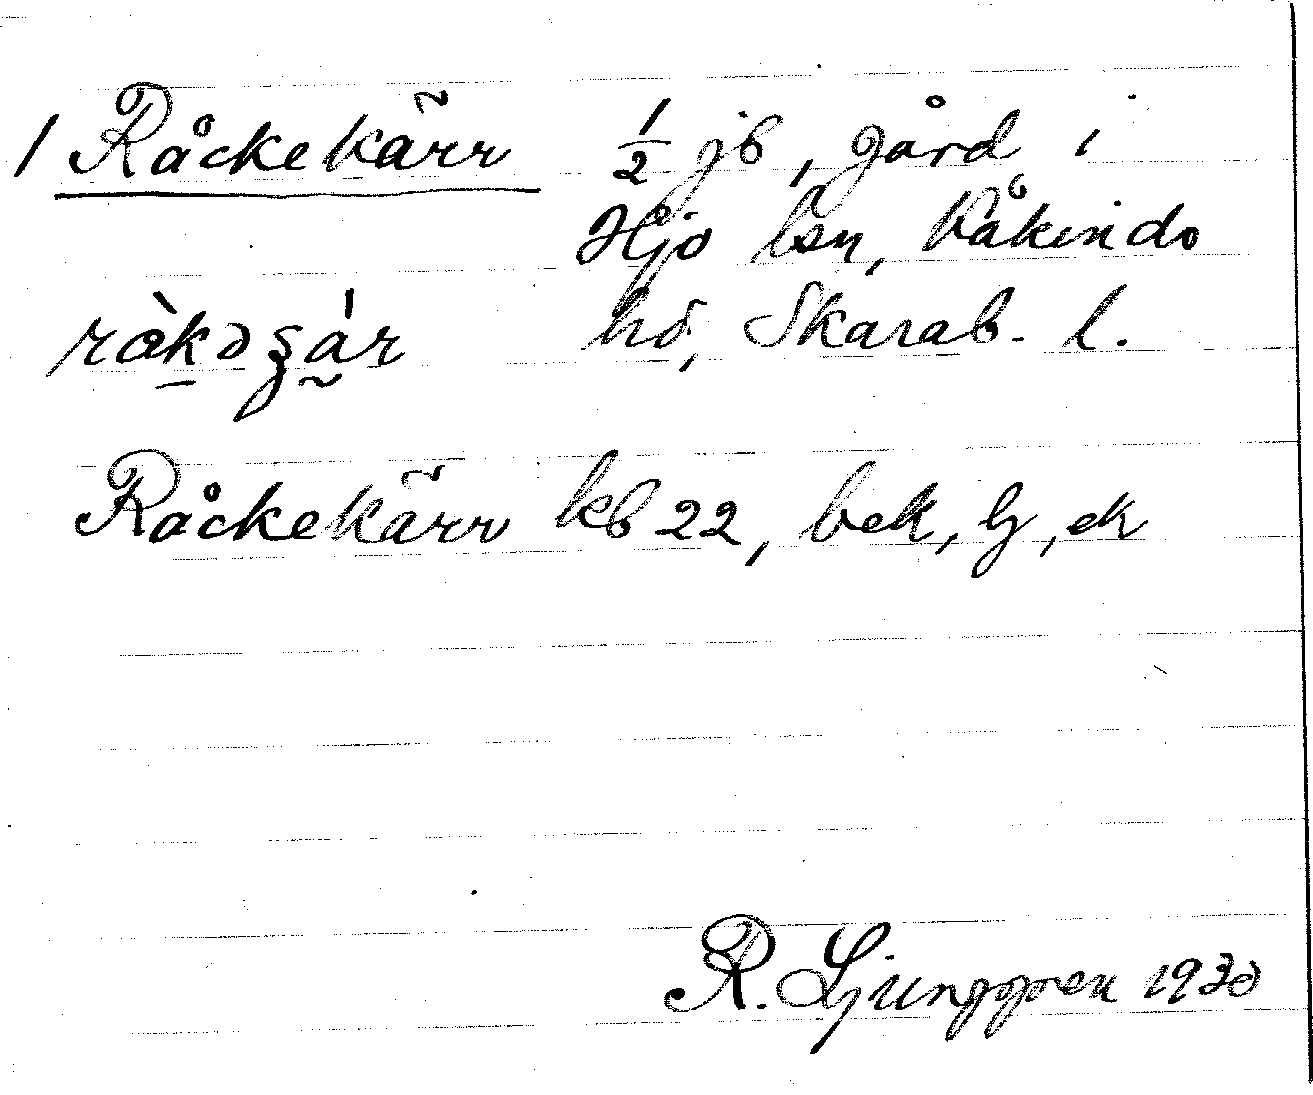 1 Råckekärr ½ jb, gård i
Hjo lsn, Kåkinds
hd, Skarab. l.
Råckekärr kb 22, bek, lj, ek
R. Ljunggren 1930